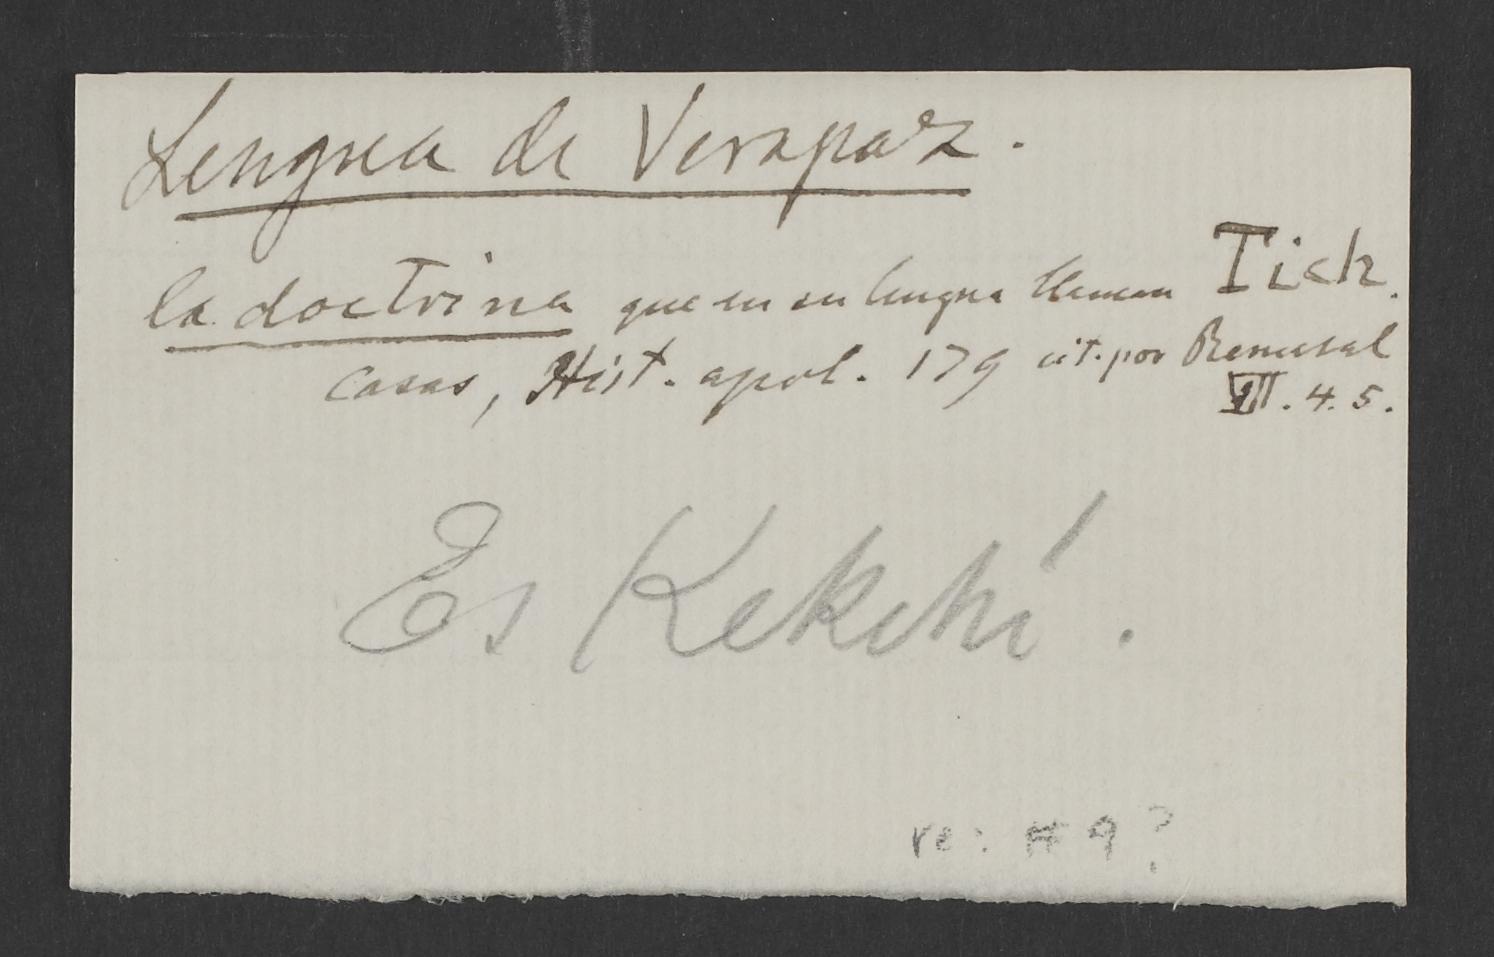 Lengua de Verapaz.
la doctrina que en su lengua llaman Tich.
Casas, Hist. apol. 179 cit. por Remesal
VII. 4. 5.
Es Kekchí.
re: # 9?